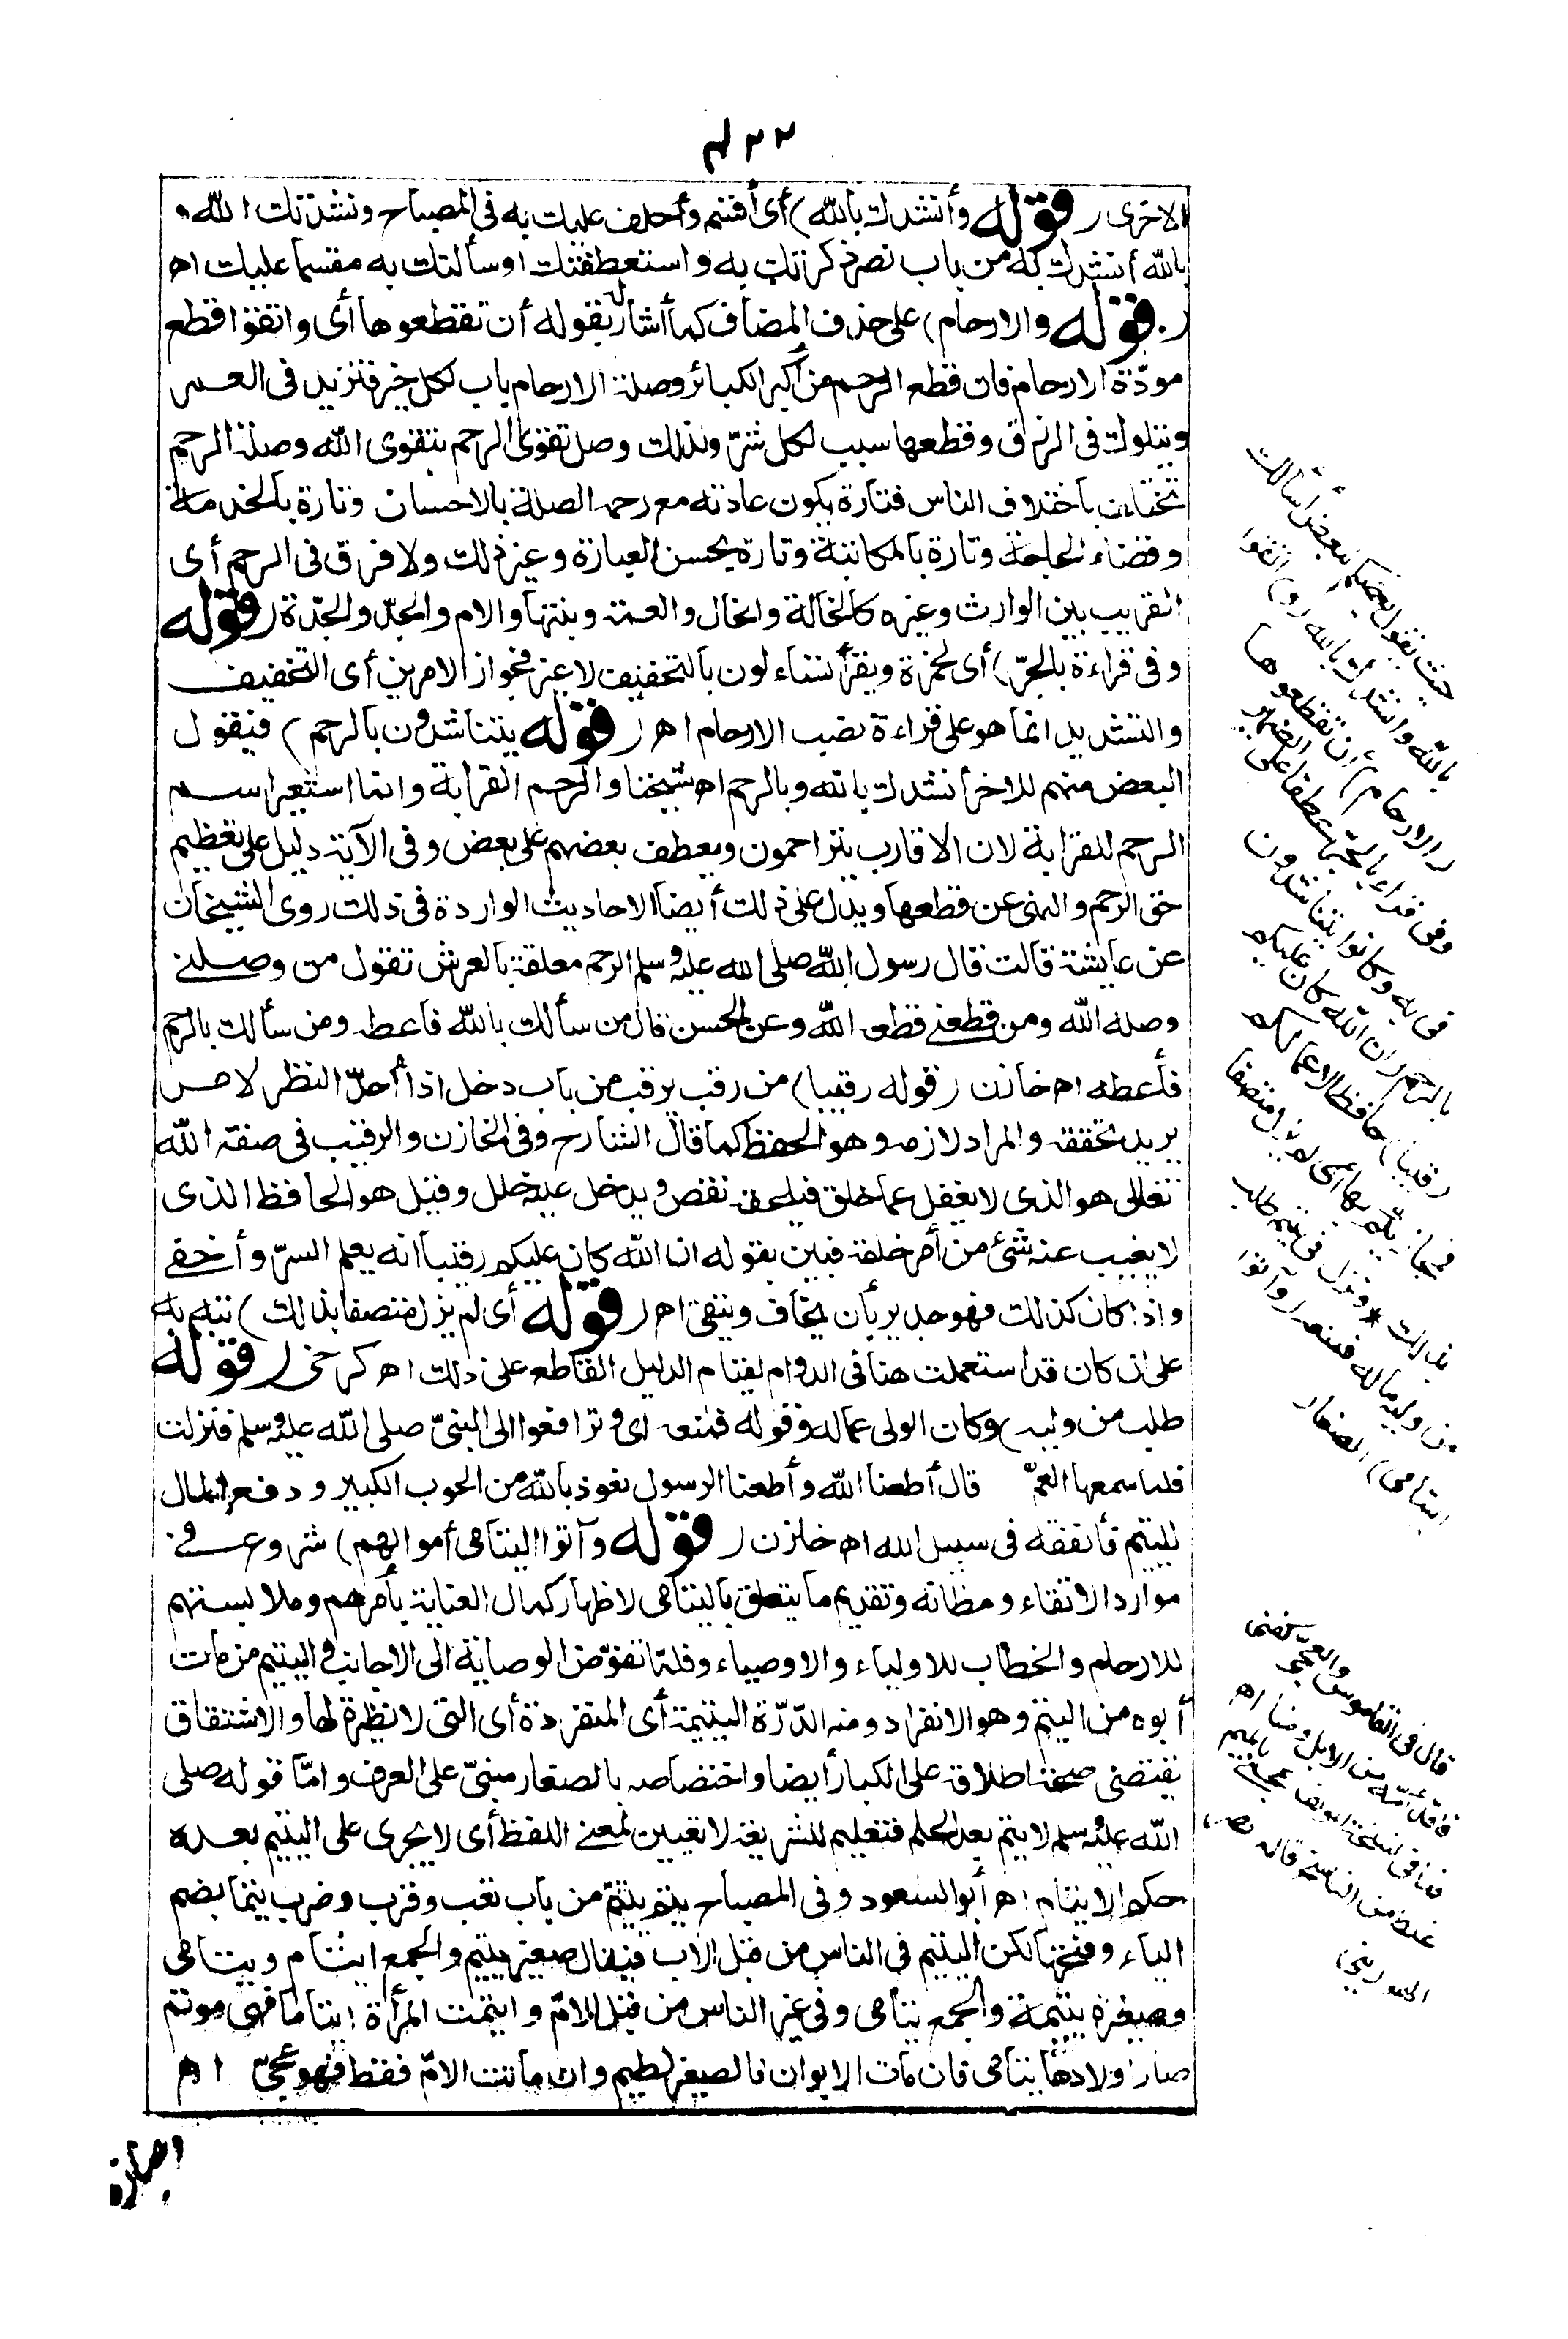 ٤٢٢
الاخرى (قوله وأنشدك بالله) أى أقسم وأحلف عليك به فى المصباح ونشدتك الله و
بالله أنشدك به من باب نصر ذكرتك به واستعطفتك او سألتك به مقسما عليك اه
(قوله والارحام) على حذف المضاف كما أشار له بقوله أن تقطعوها أى واتقوا قطع
مودّة الارحام فان قطع الرحم من أكبر الكبائر وصلة الارحام باب لكل خير فتزيد فى العمر
وتبارك فى الرزق وقطعها سبب لكل شرّ ولذلك وصل تقوى الرحم بتقوى الله وصلة الرحم
تختلف باختلاف الناس فتارة يكون عادته مع رحمه الصلة بالاحسان وتارة بالخدمة
وقضاء الحاجة وتارة بالمكاتبة وتارة بحسن العبارة وغير ذلك ولا فرق فى الرحم أى
القريب بين الوارث وغيره كالخالة والخال والعمة وبنتها والام والجدّ والجدّة (قوله
وفى قراءة بالجرّ) أى لحمزة ويقرأ تساءلون بالتخفيف لا غير فجواز الامرين أى التخفيف
والتشديد انما هو على قراءة نصب الارحام اه (قوله يتناشدون بالرحم) فيقول
البعض منهم للاخر أنشدك بالله وبالرحم اه شيخنا والرحم القرابة وانما استعير اسم
الرحم للقرابة لان الاقارب يتراحمون ويعطف بعضهم على بعض وفى الآية دليل على تعظيم
حق الرحم والنهى عن قطعها ويدل على ذلك أيضا الاحاديث الواردة فى ذلك روى الشيخان
عن عايشة قالت قال رسول الله صلى الله عليه وسلم الرحم معلقة بالعرش تقول من وصلنى
وصله الله ومن قطعنى قطعه الله وعن الحسن قال من سألك بالله فاعطه ومن سألك بالرحم
فأعطه اه خازن (قوله رقيبا) من رقب يرقب من باب دخل اذا أحدّ النظر لامر
يريد تحققه والمراد لازمه وهو الحفظ كما قال الشارح وفى الخازن والرقيب فى صفة الله
تعالى هو الذى لا يغفل عما خلق فيلحقه نقص ويدخل عليه خلل وقيل هو الحافظ الذى
لا يغيب عنه شئ من أمر خلقه فبين بقوله ان الله كان عليكم رقيبا انه يعلم السرّ وأخفى
واذا كان كذلك فهو جدير بأن يخاف ويتقى اه (قوله أى لم يزل متصفا بذلك) نبه به
على ان كان قد استعملت هنا فى الدوام لقيام الدليل القاطع على ذلك اه كرخى (قوله
طلب من وليه) وكان الولى عما له وقوله فمنعه اى وترافعوا الى النبىّ صلى الله عليه وسلم فنزلت
فلما سمعها العمّ قال أطعنا الله وأطعنا الرسول نعوذ بالله من الحوب الكبير ودفع المال
لليتيم فأنفقه فى سبيل الله اه خازن (قوله وآتوا اليتامى أموالهم) شروع فى
موارد الاتقاء ومظانه وتقديم ما يتعلق باليتامى لاظهار كمال العناية بأمرهم وملابستهم
للارحام والخطاب للاولياء والاوصياء وقلّما تفوّض الوصاية الى الاجانب واليتيم من مات
أبوه من اليتم وهو الانفراد ومنه الدّرّة اليتيمة أى المنفردة أى التى لا نظيرة لها والاشتقاق
يقتضى صحة اطلاقه على الكبار أيضا واختصاصه بالصغار مبنىّ على العرف وامّا قوله صلى
الله عليه وسلم لا يتم بعد الحلم فتعليم للشريعة لا تعيين لمعنى اللفظ أى لا يجرى على اليتيم بعده
حكم الايتام اه أبو السعود وفى المصباح يتم ييتم من باب تعب وقرب وضرب يتما بضم
الياء وفتحها لكن اليتيم فى الناس من قبل الاب فيقال صغير يتيم والجمع ايتام ويتامى
وصغيرة يتيمة والجمع يتامى وفى غير الناس من قبل الامّ وايتمت المرأة ايتاما فهى موتم
صار اولادها يتامى فان مات الابوان فالصغير لطيم وان ماتت الامّ فقط فهو عجىّ اه
حيث يقول بعضكم لبعض أسألك
بالله وانشدك بالله (و) اتقوا
(الارحام) أن تقطعوها
وفى قراءة بالجرّ عطفا على الضمير
فى به وكانوا يتناشدون
بالرحم (ان الله كان عليكم
رقيبا) حافظا لاعمالكم
فيجازيكم بها أى لم يزل متصفا
بذلك * ونزل فى يتيم طلب
من وليه ماله فمنعه (وآتوا
اليتامى) الصغار
قال فى القاموس والعجىّ كغنى
فاقد أمّه من الابل ومنا اه